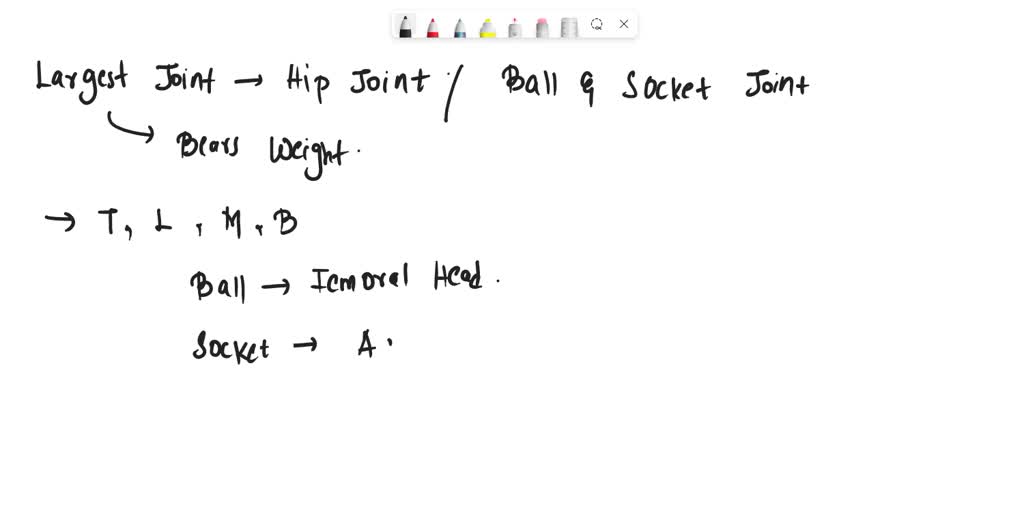 Largest Joint → Hip Joint / Ball & Socket Joint
Bears Weight.
→ T, L, M, B
Ball → Iemoral Head.
Socket → A.